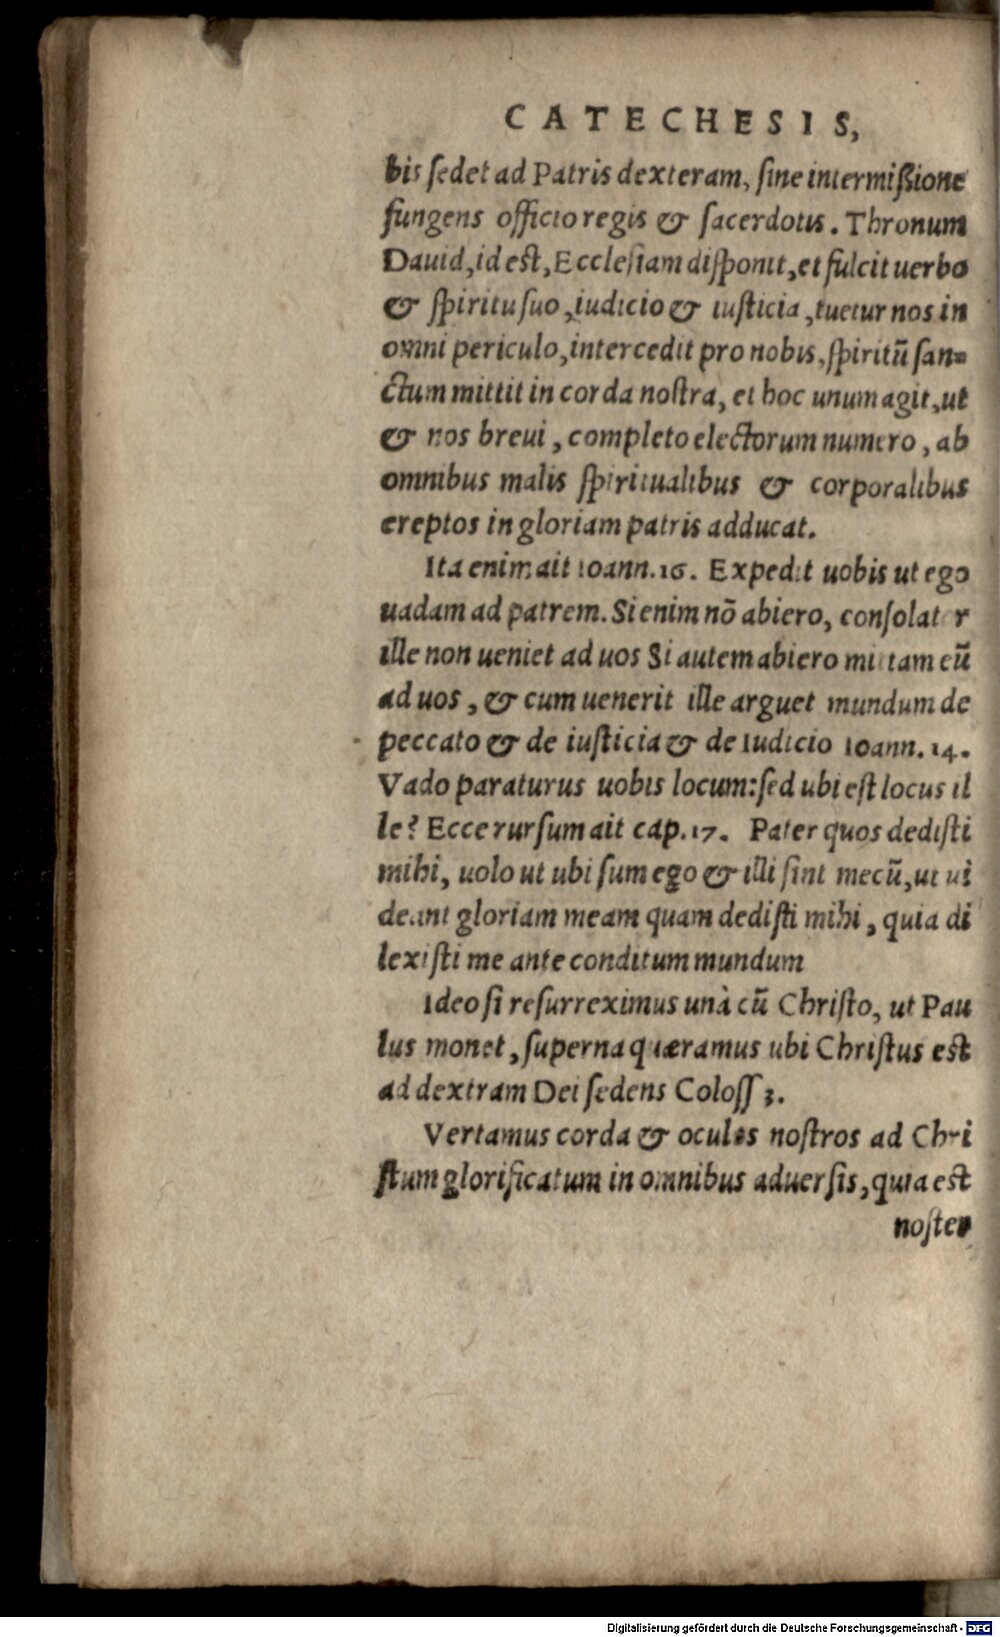 CATECHESIS,
bis sedet ad Patris dexteram, sine intermißione
fungens officio regis & sacerdotis. Thronum
Dauid, id est, Ecclesiam disponit, et fulcit uerbo
& spiritu suo, iudicio & iusticia, tuetur nos in
omni periculo, intercedit pro nobis, spiritũ san=
ctum mittit in corda nostra, et hoc unum agit, ut
& nos breui, completo electorum numero, ab
omnibus malis spiritualibus & corporalibus
ereptos in gloriam patris adducat.
Ita enim ait Ioann. 16. Expedit uobis ut ego
uadam ad patrem. Si enim nõ abiero, consolator
ille non ueniet ad uos Si autem abiero mittam eũ
ad uos, & cum uenerit ille arguet mundum de
peccato & de iusticia & de Iudicio Ioann. 14.
Vado paraturus uobis locum: sed ubi est locus il
le? Ecce rursum ait cap. 17. Pater quos dedisti
mihi, uolo ut ubi sum ego & illi sint mecũ, ut ui
deant gloriam meam quam dedisti mihi, quia di
lexisti me ante conditum mundum
Ideo si resurreximus unà cũ Christo, ut Pau
lus monet, superna quæramus ubi Christus est
ad dextram Dei sedens Coloss 3.
Vertamus corda & oculos nostros ad Chri
stum glorificatum in omnibus aduersis, quia est
noster
Digitalisierung gefördert durch die Deutsche Forschungsgemeinschaft - DFG